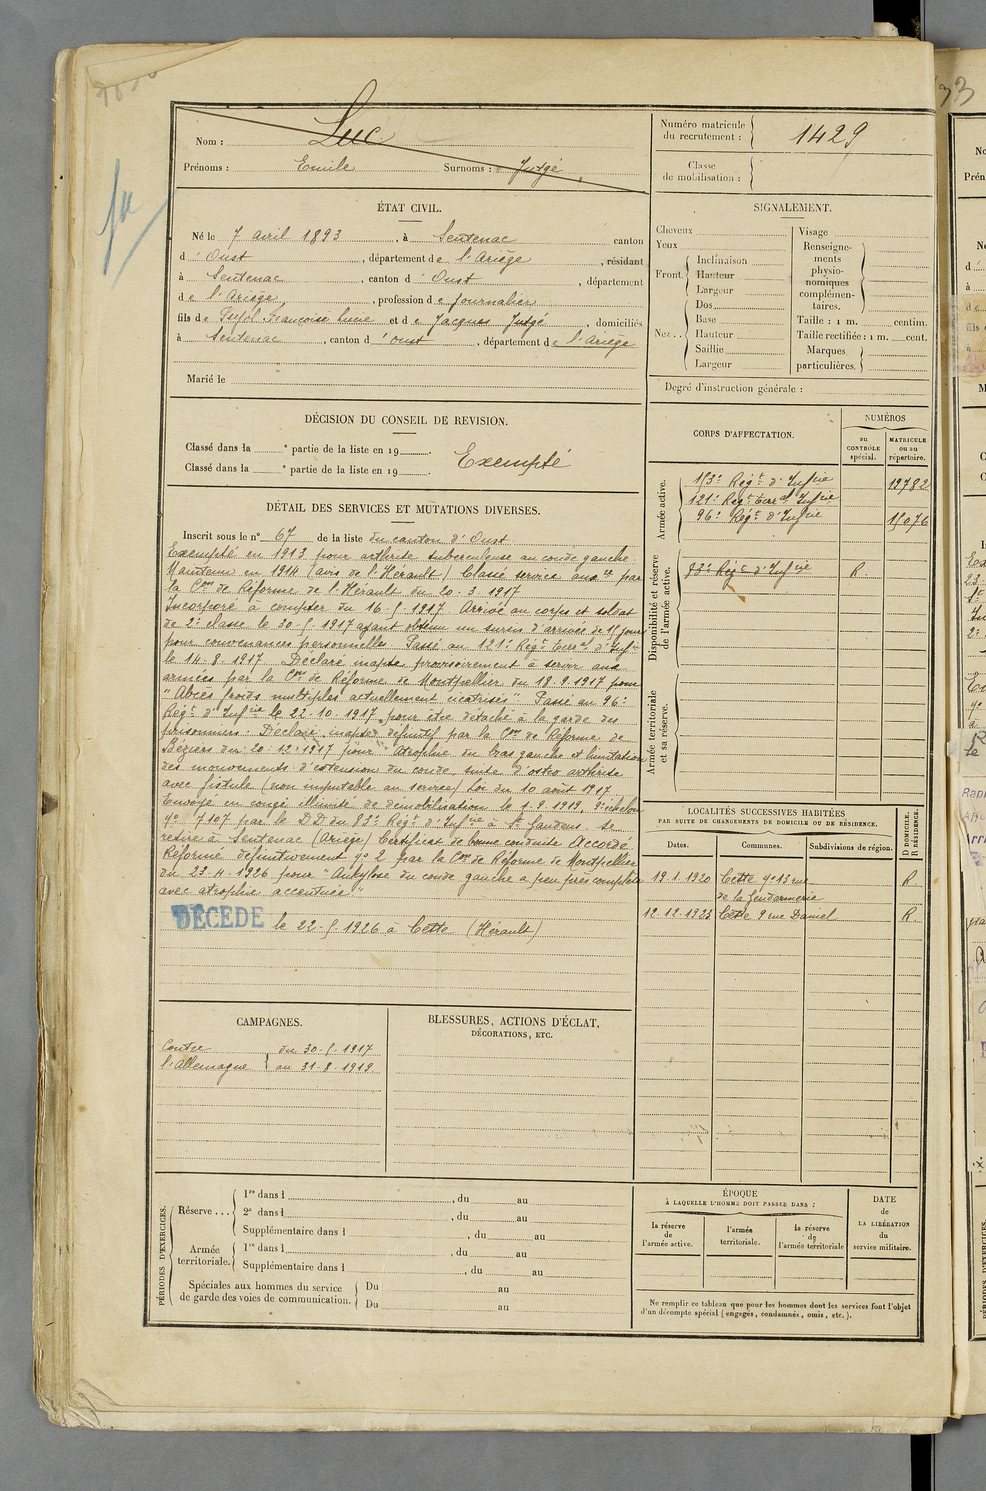 Nom : Luc
Prénoms : Emile Surnoms : Jutgé
Numéro matricule du recrutement : 1429
Classe de mobilisation :
ÉTAT CIVIL.
Né le 7 avril 1893, à Sentenac canton
d' Oust, département de l'Ariège, résidant
à Sentenac, canton d' Oust, département
de l'Ariège, profession de journalier
fils de Pujol Françoise Lucie et de Jacques Jutgé, domiciliés
à Sentenac, canton d' Oust, département de l'Ariège
Marié le
SIGNALEMENT.
Cheveux
Yeux
Front. Inclinaison
Hauteur
Largeur
Nez.. Dos
Base
Hauteur
Saillie
Largeur
Visage
Renseigne-
ments
physio-
nomiques
complémen-
taires.
Taille : 1 m. centim.
Taille rectifiée : 1 m. cent.
Marques
particulières.
Degré d'instruction générale :
DÉCISION DU CONSEIL DE REVISION.
Classé dans la e partie de la liste en 19 .
Classé dans la e partie de la liste en 19 .
Exempté
DÉTAIL DES SERVICES ET MUTATIONS DIVERSES.
Inscrit sous le n° 67 de la liste du canton d'Oust
Exempté en 1913 pour arthrite tuberculeuse au coude gauche.
Maintenu en 1914 (avis de l'Hérault) Classé service auxre par
la Con de Réforme de l'Hérault du 20.3.1917
Incorporé à compter du 16.5.1917. Arrivé au corps et soldat
de 2e classe le 30.5.1917 ayant obtenu un sursis d'arrivée de 15 jours
pour convenances personnelles. Passé au 121e Regt Terral d'Infie
le 14.8.1917. Déclaré inapte provisoirement à servir aux
armées par la Con de Réforme de Montpellier du 18.9.1917 pour
"Abcès froids multiples actuellement cicatrisés". Passé au 96e
Régt d'Infie le 22.10.1917 pour être détaché à la garde des
prisonniers. Déclaré inapte définitif par la Con de Réforme de
Béziers du 20.12.1917 pour "Atrophie du bras gauche et limitation
des mouvements d'extension du coude, suite d'osteo arthrite
avec fistule (non imputable au service) Loi du 10 août 1917
Envoyé en congé illimité de démobilisation le 1.9.1919, 8e échelon
n° 7107 par le DD du 83e Regt d'Infie à St Gaudens. Se
retire à Sentenac (Ariège) Certificat de bonne conduite Accordé.
Réformé définitivement n° 2 par la Con de Réforme de Montpellier
du 23.4.1926 pour "Ankylose du coude gauche a peu près complète
avec atrophie accentuée"
DÉCÉDÉ le 22.5.1926 à Cette (Hérault)
CORPS D'AFFECTATION.
NUMÉROS
au CONTRÔLE spécial.
MATRICULE ou au répertoire.
Armée active.
153e Regt d'Infrie 19782
121e Regt Terral Infrie
96e Regt d'Infrie 15076
Disponibilité et réserve de l'armée active.
83e Regt d'Infrie R.
Armée territoriale et sa réserve.
LOCALITÉS SUCCESSIVES HABITÉES
PAR SUITE DE CHANGEMENTS DE DOMICILE OU DE RÉSIDENCE.
Dates. Communes. Subdivisions de région. D DOMICILE. R RÉSIDENCE.
19.1.1920 Cette n° 13 rue R
de la Gendarmerie
12.12.1923 Cette 9 rue Daniel R
CAMPAGNES.
Contre du 30.5.1917
l'Allemagne au 31.8.1919
BLESSURES, ACTIONS D'ÉCLAT,
DÉCORATIONS, ETC.
PÉRIODES D'EXERCICES.
Réserve... 1re dans l , du au
2e dans l , du au
Supplémentaire dans l , du au
Armée territoriale. 1re dans l , du au
Supplémentaire dans l , du au
Spéciales aux hommes du service Du au
de garde des voies de communication. Du au
ÉPOQUE
À LAQUELLE L'HOMME DOIT PASSER DANS :
la réserve de l'armée active.
l'armée territoriale.
la réserve de l'armée territoriale
DATE
de
LA LIBÉRATION
du
service militaire.
Ne remplir ce tableau que pour les hommes dont les services font l'objet
d'un décompte spécial (engagés, condamnés, omis, etc.).